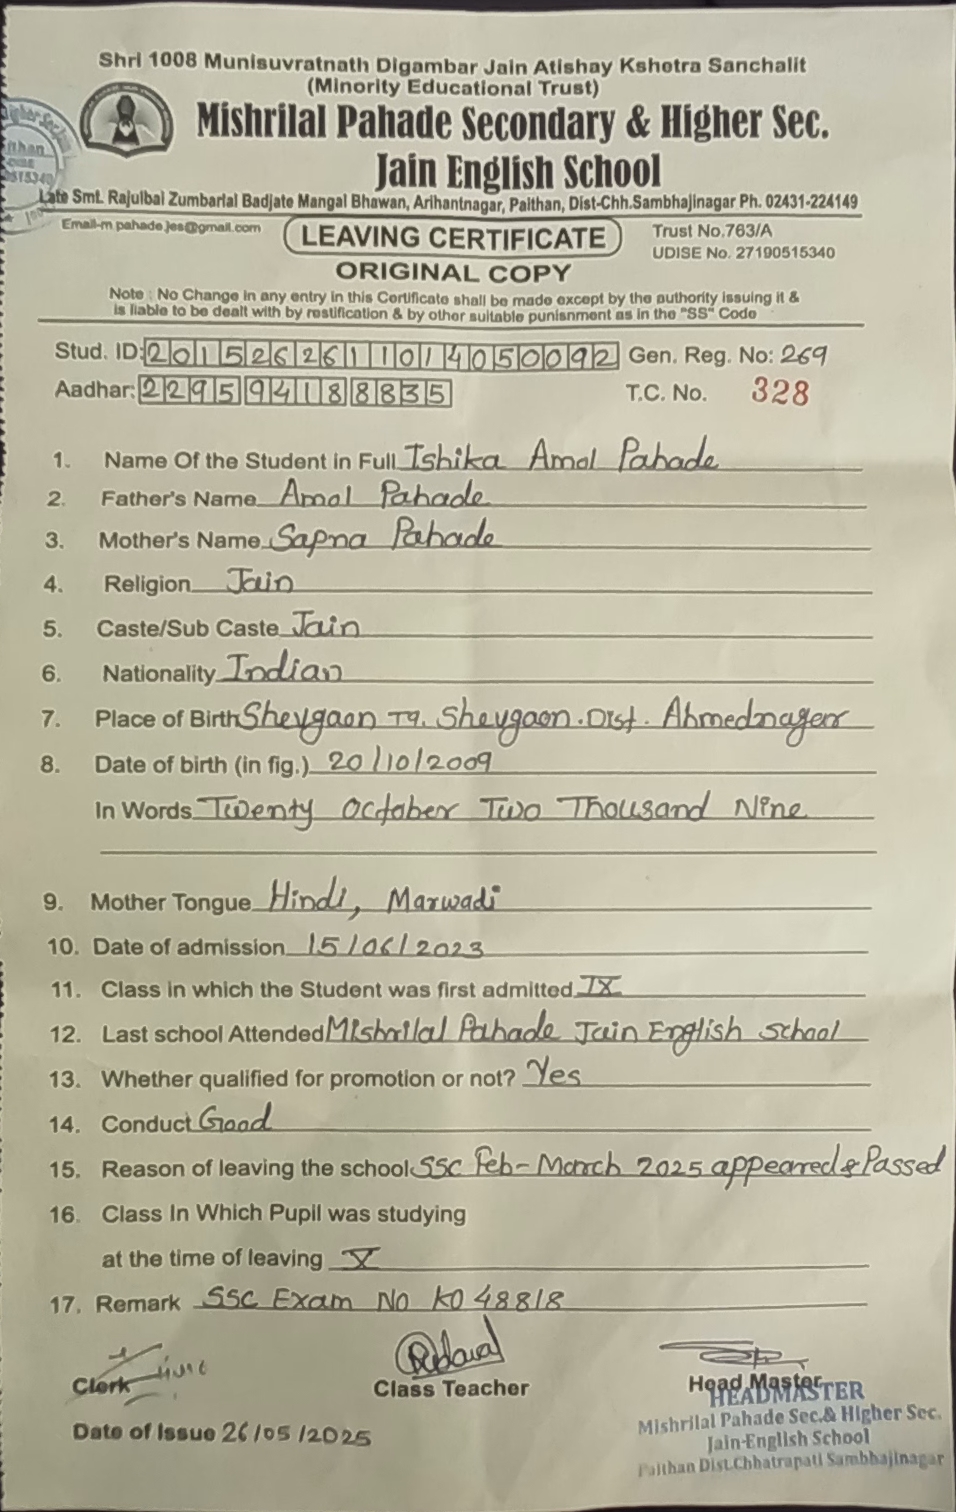 Shri 1008 Munisuvratnath Digambar Jain Atishay Kshetra Sanchalit
(Minority Educational Trust)
Mishrilal Pahade Secondary & Higher Sec.
Jain English School
Late Smt. Rajulbai Zumbarlal Badjate Mangal Bhawan, Arihantnagar, Paithan, Dist-Chh.Sambhajinagar Ph. 02431-224149
Email-m pahade.jes@gmail.com
LEAVING CERTIFICATE
Trust No.763/A
UDISE No. 27190515340
ORIGINAL COPY
Note : No Change in any entry in this Certificate shall be made except by the authority issuing it &
is liable to be dealt with by restification & by other suitable punisnment as in the "SS" Code
Stud. ID: 2015262611014050092 Gen. Reg. No: 269
Aadhar: 229594188835 T.C. No. 328
1. Name Of the Student in Full Ishika Amol Pahade
2. Father's Name Amol Pahade
3. Mother's Name Sapna Pahade
4. Religion Jain
5. Caste/Sub Caste Jain
6. Nationality Indian
7. Place of Birth Shevgaon Tq. Shevgaon. Dist. Ahmednager
8. Date of birth (in fig.) 20/10/2009
In Words Twenty October Two Thousand Nine
9. Mother Tongue Hindi, Marwadi
10. Date of admission 15/06/2023
11. Class in which the Student was first admitted IX
12. Last school Attended Mishrilal Pahade Jain English School
13. Whether qualified for promotion or not? Yes
14. Conduct Good
15. Reason of leaving the school SSC Feb-March 2025 appeared & Passed
16. Class In Which Pupil was studying
at the time of leaving X
17. Remark SSC Exam No K048818
Clerk
Class Teacher
Head Master
HEADMASTER
Mishrilal Pahade Sec.& Higher Sec.
Jain-English School
Paithan Dist.Chhatrapati Sambhajinagar
Date of Issue 26/05/2025